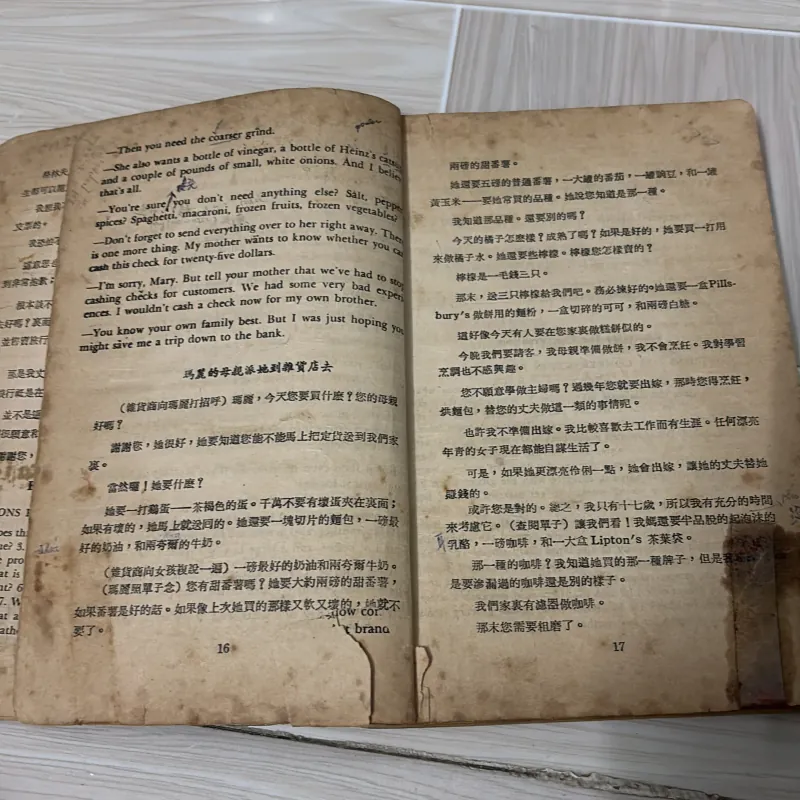 —Then you need the coarser grind.
—She also wants a bottle of vinegar, a bottle of Heinz's catsup
and a couple of pounds of small, white onions. And I believe
that's all.
—You're sure you don't need anything else? Salt, pepper,
spices? Spaghetti, macaroni, frozen fruits, frozen vegetables?
—Don't forget to send everything over to her right away. There
is one more thing. My mother wants to know whether you can
cash this check for twenty-five dollars.
—I'm sorry, Mary. But tell your mother that we've had to stop
cashing checks for customers. We had some very bad experi-
ences. I wouldn't cash a check now for my own brother.
—You know your own family best. But I was just hoping you
might save me a trip down to the bank.
瑪麗的母親派她到雜貨店去
(雜貨商向瑪麗打招呼) 瑪麗,今天您要買什麼?您的母親
好嗎?
謝謝您,她很好,她要知道您能不能馬上把定貨送到我們家
裏。
當然囉!她要什麼?
她要一打鷄蛋——茶褐色的蛋。千萬不要有壞蛋夾在裏面;
如果有壞的,她馬上就說囘的。她還要一塊切片的麵包,一磅最
好的奶油,和兩夸爾的牛奶。
(雜貨商向女孩複說一遍) 一磅最好的奶油和兩夸爾牛奶。
(瑪麗照單子念) 您有甜番薯嗎?她要大約兩磅的甜番薯,
如果番薯是好的話。如果像上次她買的那樣又軟又壞的,她就不
要了。
brand
16
兩磅的甜番薯。
她還要五磅的普通番薯,一大罐的番茄,一罐豌豆,和一罐
黃玉米——要她常買的品種。她說您知道是那一種。
我知道那品種。還要別的嗎?
今天的橘子怎麼樣?成熟了嗎?如果是好的,她要買一打用
來做橘子水。她還要些檸檬。檸檬您怎樣賣的?
檸檬是一毛錢三只。
那末,送三只檸檬給我們吧。務必揀好的。她還要一盒Pills-
bury's 做餅用的麵粉,一盒切碎的可可,和兩磅白糖。
這好像今天有人要在您家裏做糕餅似的。
今晚我們要請客,我母親準備做餅,我不會烹飪。我對學習
烹調也不感興趣。
您不願意學做主婦嗎?過幾年您就要出嫁,那時您得烹飪,
烘麵包,替您的丈夫做這一類的事情呢。
也許我不準備出嫁。我比較喜歡去工作而有生涯。任何漂亮
年青的女子現在都能自謀生活了。
可是,如果她更漂亮伶俐一點,她會出嫁,讓她的丈夫替她
賺錢的。
或許您是對的。總之,我只有十七歲,所以我有充分的時間
來考慮它。(查閱單子) 讓我們看!我媽還要中品股的起泡沫的
乳酪,一磅咖啡,和一大盒 Lipton's 茶葉袋。
那一種的咖啡?我知道她買的那一種牌子,但是
是要滲漏過的咖啡還是別的樣子。
我們家裏有濾器做咖啡。
那末您需要粗磨了。
17